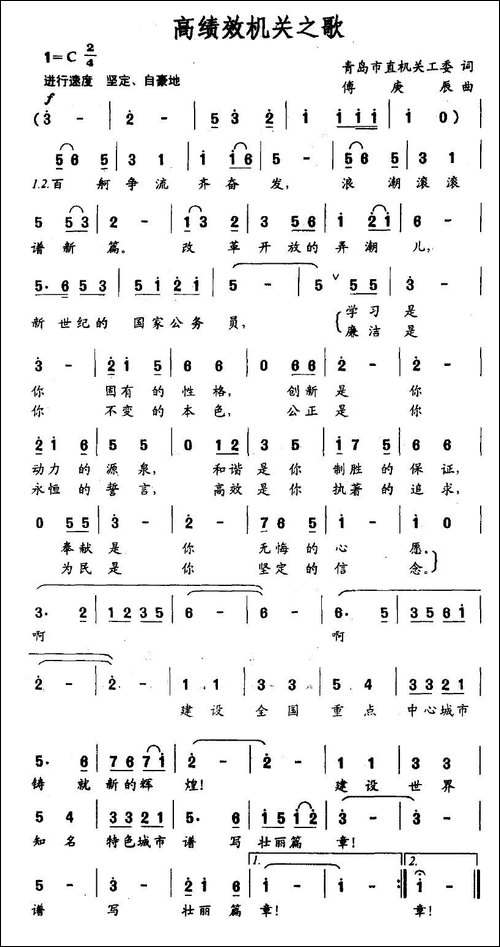 高绩效机关之歌
1=C 2/4
青岛市直机关工委 词
进行速度 坚定、自豪地
傅庚辰 曲
f
(3 - | 2 - | 5 3 2 | 1 1 1 1 | 1 0)
5 6 5 | 3 1 | 1 1 6 | 5 - | 5 6 5 | 3 1 |
1.2.百 舸争流 齐奋 发, 浪 潮滚滚
5 5 3 | 2 - | 1 3 2 | 3 5 6 | 1 2 1 | 6 - |
谱新篇。 改革开放的弄潮儿,
5. 6 5 3 | 5 1 2 1 | 5 - | 5 5 5 | 3 - |
新世纪的 国家公务员, 学习是
廉洁是
3 - | 2 1 5 | 6 6 | 0 0 | 6 6 1 | 2 - |
你 固有的性格, 创新是你
你 不变的本色, 公正是你
2 1 6 | 5 5 | 0 1 2 | 3 5 | 1 7 5 | 6 6 |
动力的源泉, 和谐是你 制胜的保证,
永恒的誓言, 高效是你 执著的追求,
0 5 5 | 3 - | 2 - | 7 6 5 | 1 - | 1 0
奉献是你 无悔的心愿。
为民是你 坚定的信念。
3. 2 | 1 2 3 5 | 6 - | 6 - | 6. 5 | 3 5 6 1 |
啊 啊
2 - | 2 - | 1 1 | 3 3 | 5 4 | 3 3 2 1 |
建设 全国 重点 中心城市
5. 6 | 7 6 7 1 | 2 - | 2 - | 1 1 | 3 3 |
铸就新的辉煌! 建设世界
5 4 | 3 3 2 1 | 5. 6 | 1 5 1 2 | 3 - | 3 - |
知名 特色城市 谱写壮丽篇章!
1. 2.
5 - | 3 - | 2 1 6 | 1 - | 1 - :| 1 - |
谱写 壮丽篇章! 章!